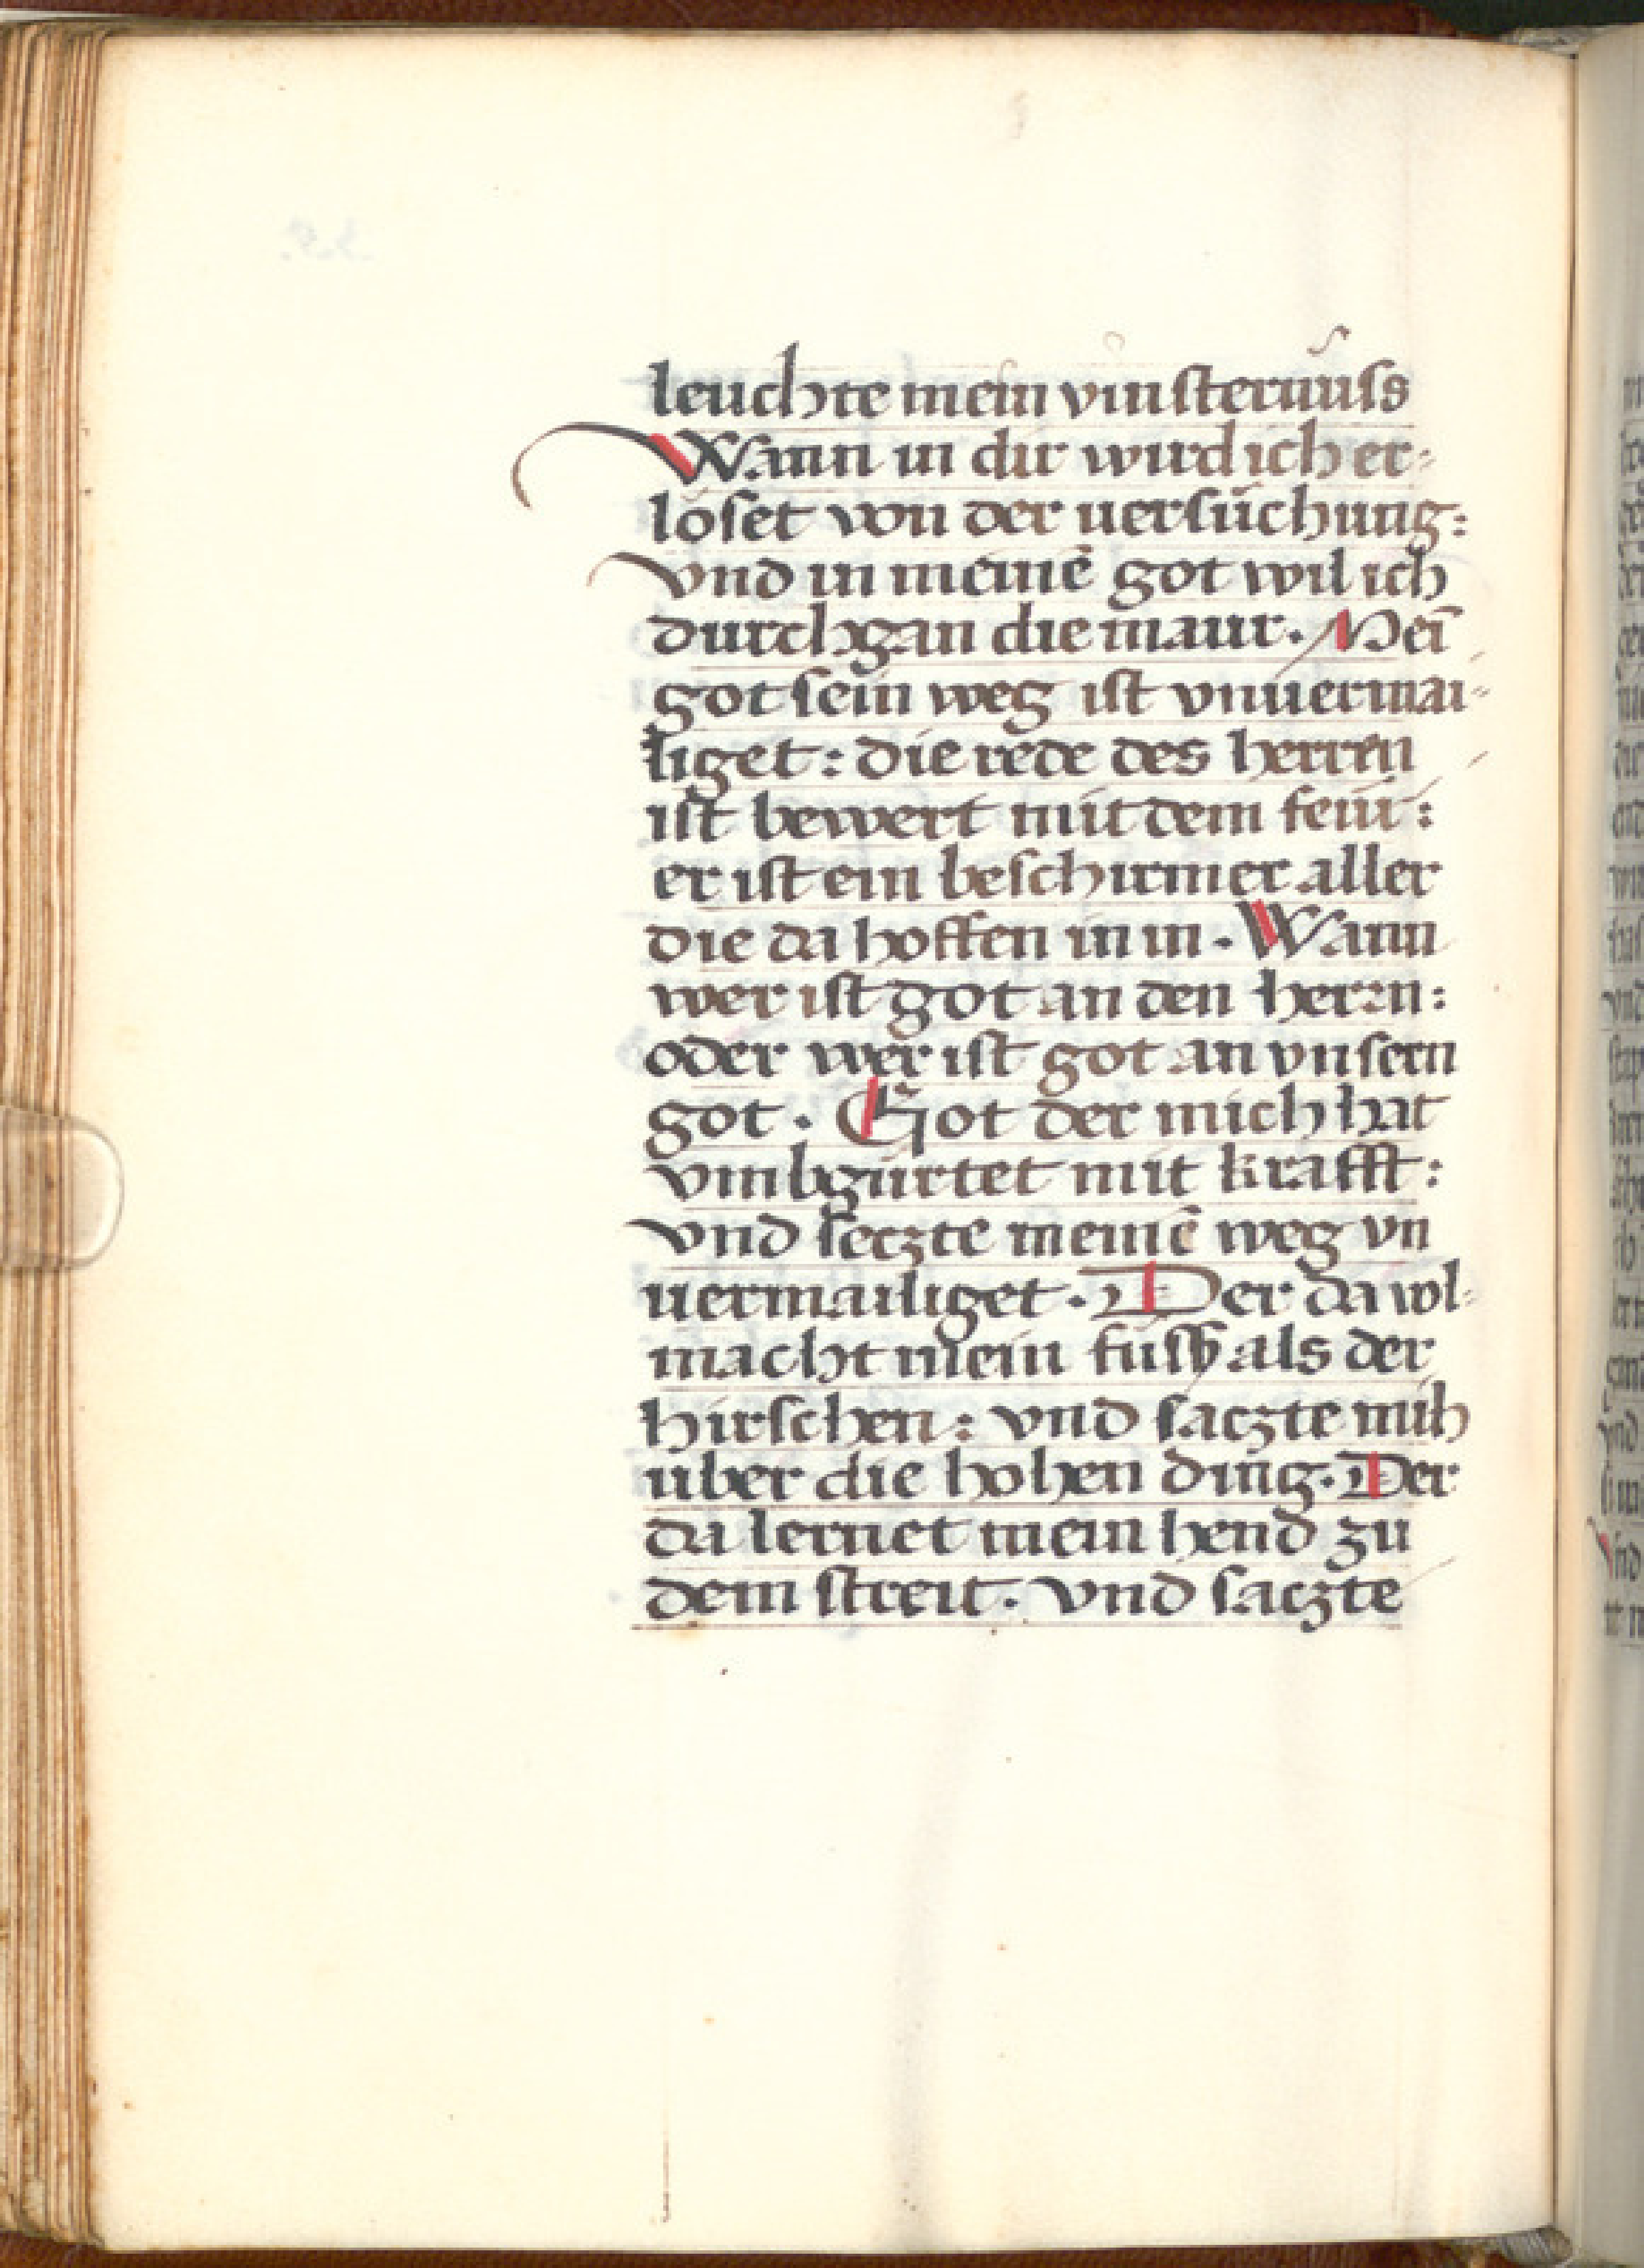 leuchte mein vinsternuss
Wann in dir wird ich er-
löset von der uersuchung:
vnd in meinē got wil ich
durchgan die maur. Mei̅
got sein weg ist vnuermai-
liget: die rede des herren
ist bewert mit dem feür:
er ist ein beschirmer aller
die da hoffen in in. Wann
wer ist got an den herrn:
oder wer ist got an vnsern
got. Got der mich hat
vmbgürtet mit krafft:
vnd seczte meinē weg vn
uermailiget. Der da wol-
macht mein füsß als der
hirschen: vnd saczte mih
über die hohen ding. Der
da lernet mein hend zu
dem streit. vnd saczte